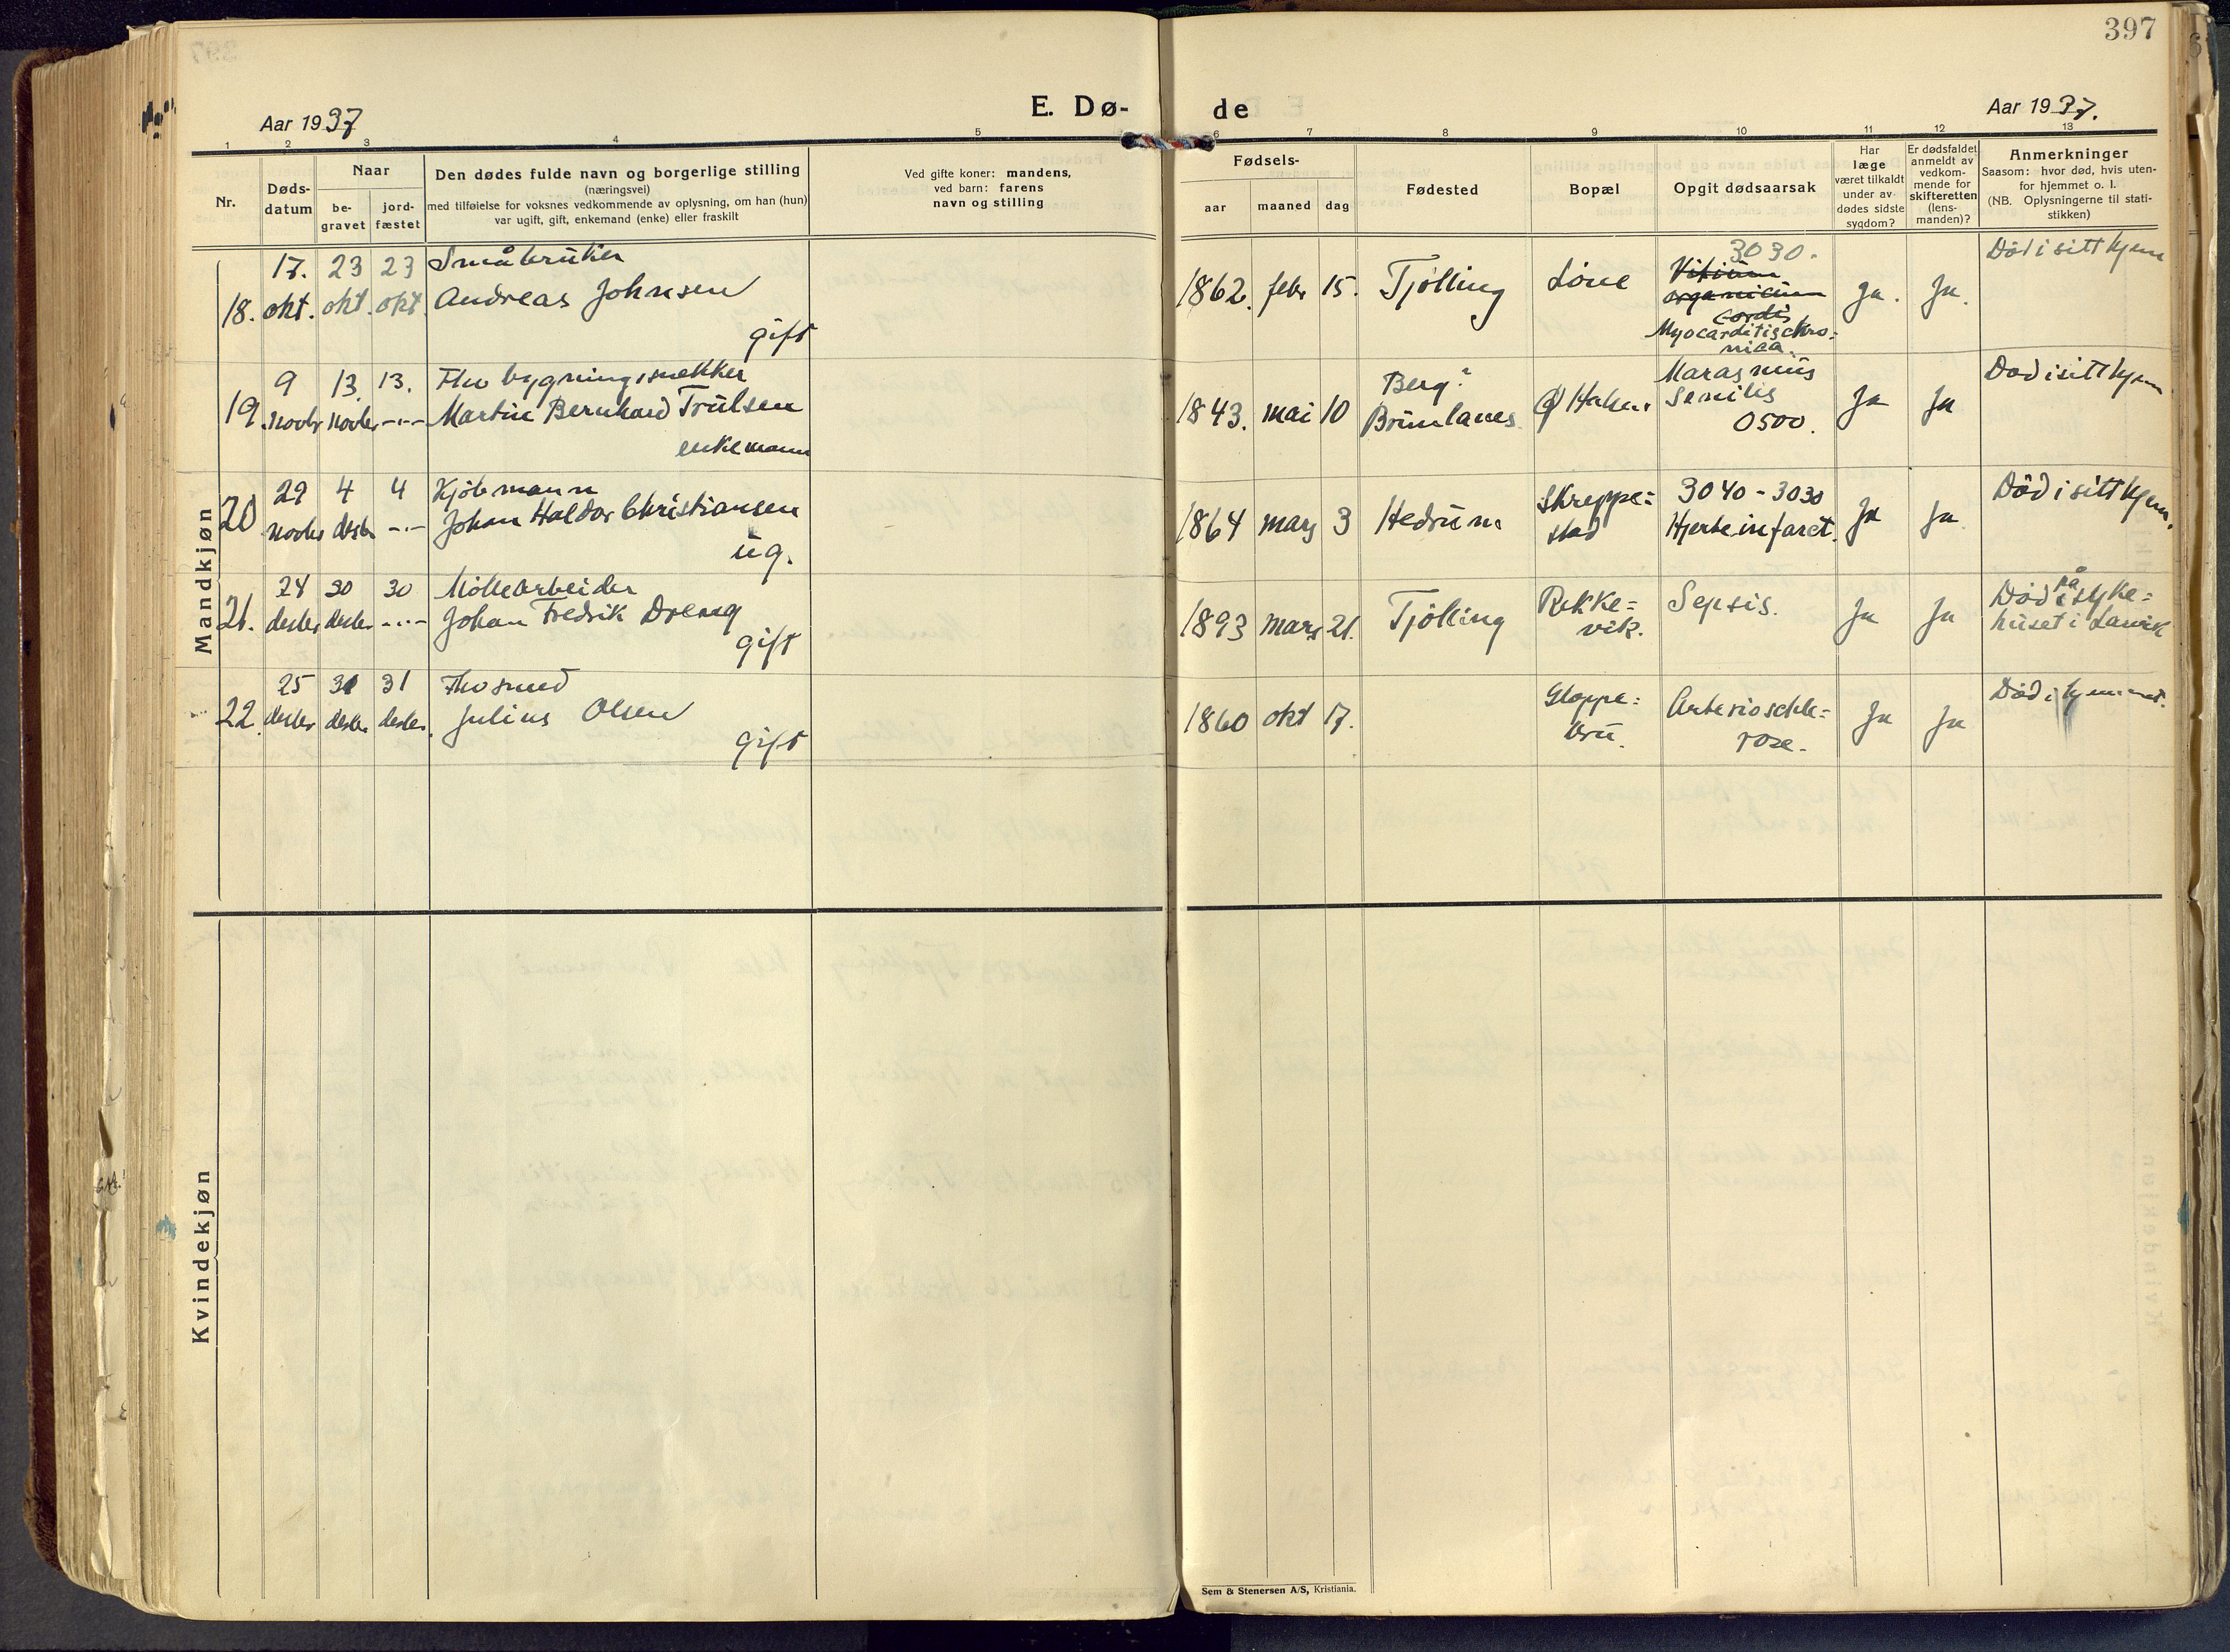 397
E. Dø- de
Aar 1937
Aar 1937.
1 2 3 4 5 6 7 8 9 10 11 12 13
Nr.
Døds-
datum
Naar
be-
gravet
jord-
fæstet
Den dødes fulde navn og borgerlige stilling
(næringsvei)
med tilføielse for voksnes vedkommende av oplysning, om han (hun)
var ugift, gift, enkemand (enke) eller fraskilt
Ved gifte koner: mandens,
ved barn: farens
navn og stilling
Fødsels-
aar maaned dag
Fødested
Bopæl
Opgit dødsaarsak
Har
læge
været tilkaldt
under av-
dødes sidste
sygdom?
Er dødsfaldet
anmeldt av
vedkom-
mende for
skifteretten
(lens-
manden)?
Anmerkninger
Saasom: hvor død, hvis uten-
for hjemmet o. l.
(NB. Oplysningerne til stati-
stikken)
Mandkjøn
18.
17.
okt.
23
okt.
23
okt.
Småbruker
Andreas Johnsen
gift
1862. febr 15.
Tjølling
3030.
Vitium
organicum
cordis
Myocarditis chro-
nica.
Ja. Ja.
Død i sitt hjem
19.
9
novbr
13.
novbr
13.
-"-
Fhv bygningssnekker
Martin Bernhard Trulsen
enkemann
1843. mai 10
Berg?
Brunlanes
Marasmus
senilis
0500.
Ja Ja
Død i sitt hjem
20
29
novbr
4
desbr
4
-"-
Kjøbmann
Johan Haldor Christiansen
ug.
1864 mars 3
Hedrum
Skreppe=
stad
3040 - 3030
Hjerteinfarct.
Ja Ja
Død i sitt hjem.
21.
24
desber
30
desber
30
-"-
Møllearbeider
Johan Fredrik Dreng
gift
1893 mars 21.
Tjølling
Rekke=
vik.
Sepsis.
Ja Ja
på
Død i syke=
huset i Larvik
22.
25
desber
31
desbr
31
desber.
Fhv smed
Julius Olsen
gift
1860 okt 17.
Gloppe=
bru.
Arterioschle=
rose.
Ja Ja
Død i hjemmet.
Kvindekjøn
Sem & Stenersen A/S, Kristiania.